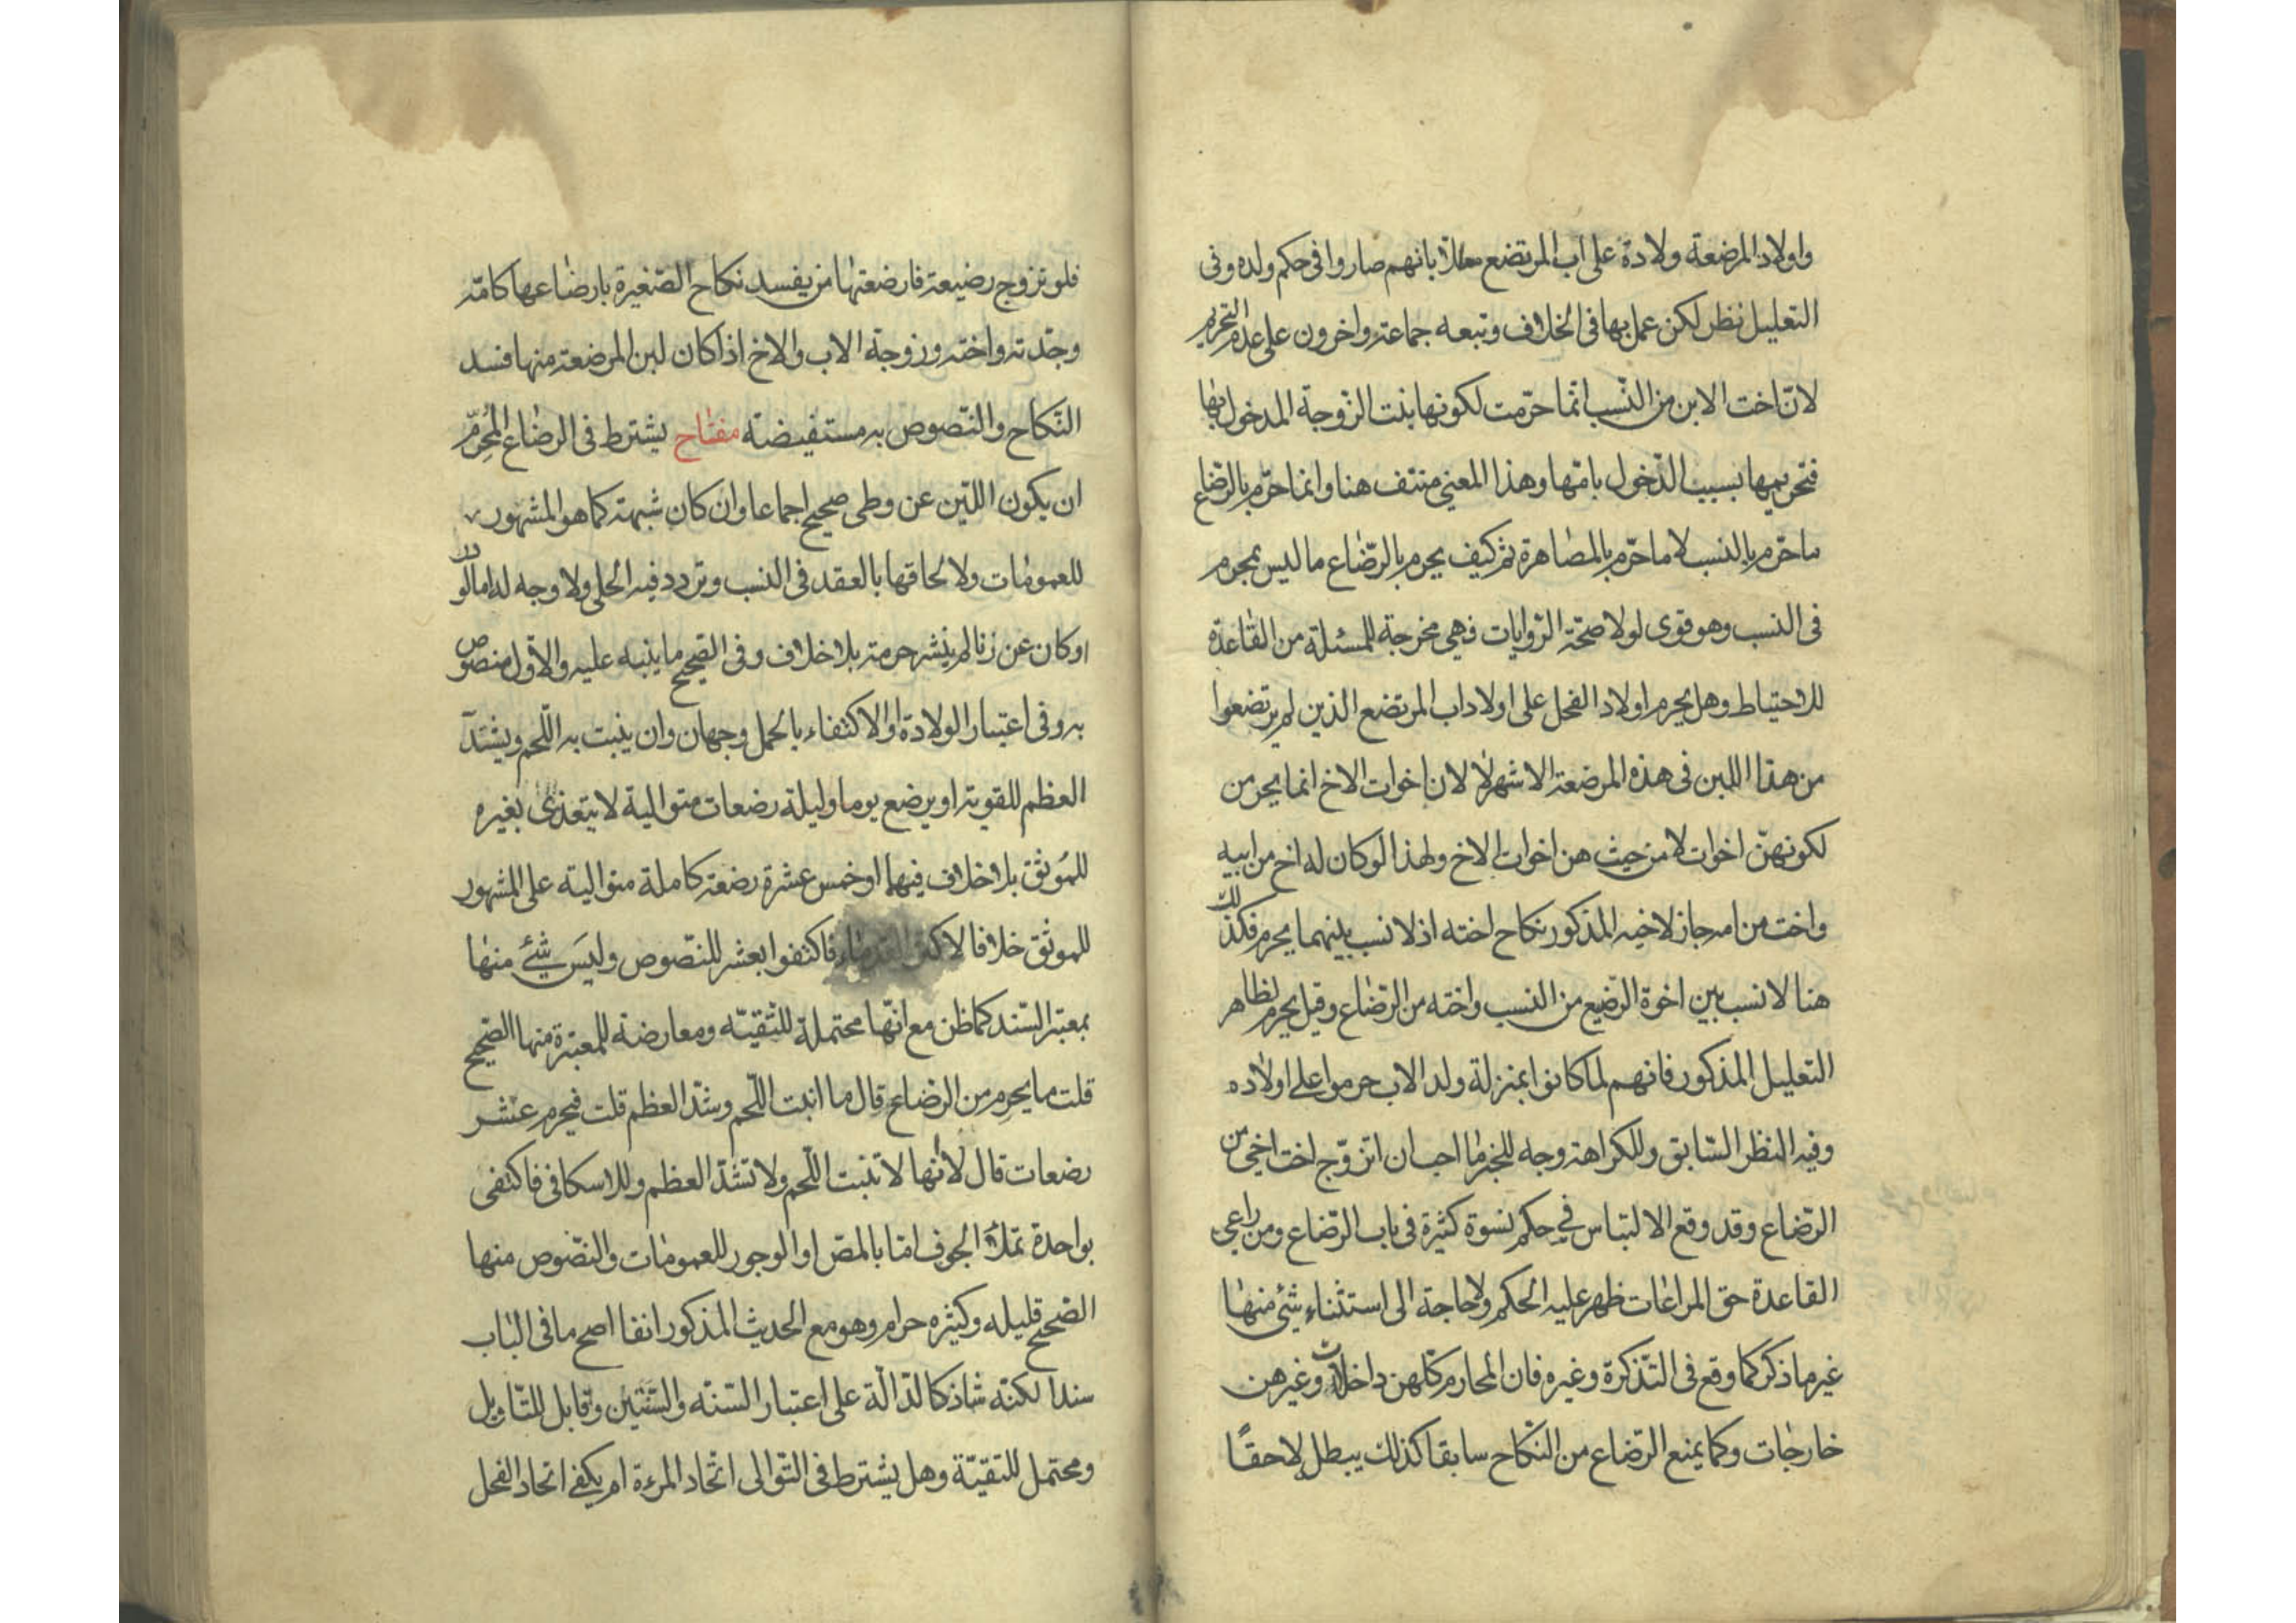 واولاد المرضعة ولادة على اب المرتضع معللا بانهم صاروا فى حكم ولده وفى
التعليل نظر لكن عمل بها فى الخلاف وتبعه جماعة واخرون على عدم التحريم
لانّ اخت الابن من النّسب انّما حرّمت لكونها بنت الزّوجة المدخول بها
فتحريمها بسبب الدّخول بامّها وهذا المعنى منتف هنا وانما حرّم بالرّضاع
ما حرّم بالنسب لا ما حرّم بالمصاهرة ثم كيف يحرم بالرّضاع ما ليس بمحرم
فى النسب وهو قوى لولا صحّة الرّوايات فهى مخرجة للمسئلة من القاعدة
للاحتياط وهل يحرم اولاد الفحل على اولاد اب المرتضع الذين لم يرتضعوا
من هذا اللبن فى هذه المرضعة الاشهر لا لان اخوات الاخ انما يحرمن
لكونهنّ اخوات لا من حيث هن اخوات الاخ ولهذا لو كان له اخ من ابيه
واخت من امه جاز لاخيه المذكور نكاح اخته اذ لا نسب بينهما يحرم فكذلك
هنا لا نسب بين اخوة الرّضيع من النسب واخته من الرّضاع وقيل يحرم لظاهر
التعليل المذكور فانهم لما كانوا بمنزلة ولد الاب حرموا على اولاده
وفيه النظر السّابق وللكراهة وجه للخبر ما احب ان اتزوّج اخت اخى من
الرّضاع وقد وقع الالتباس في حكم نسوة كثيرة فى باب الرّضاع ومن راعى
القاعدة حق المراعات ظهر عليه الحكم ولا حاجة الى استثناء شئ منها
غير ما ذكر كما وقع فى التّذكرة وغيره فان المحارم كلّهن داخلات وغيرهن
خارجات وكما يمنع الرّضاع من النّكاح سابقا كذلك يبطل لاحقًا
فلو تزوج رضيعة فارضعتها من يفسد نكاح الصّغيرة بارضاعها كامّه
وجدّته واخته وزوجة الاب والاخ اذا كان لبن المرضعة منها فسد
النّكاح والنّصوص به مستفيضة مفتاح يشترط فى الرضاع المُحرِّم
ان يكون اللّبن عن وطى صحيح اجماعا وان كان شبهة كما هو المشهور
للعمومات ولالحاقها بالعقد فى النسب وتردد فيه الحلى ولا وجه له اما لو در
او كان عن زنا لم ينشر حرمته بلا خلاف وفى الصّحيح ما ينبه عليه والاوّل منصوص
به وفى اعتبار الولادة او الاكتفاء بالحمل وجهان وان ينبت به اللّحم ويشتدّ
العظم للقوية او يرضع يوما وليلة رضعات متوالية لا يتغذى بغيره
للمُوثّق بلا خلاف فيهما او خمس عشرة رضعة كاملة متوالية على المشهور
للموثق خلافا لاكثر القدماء فاكتفوا بعشر للنّصوص وليس شئ منها
بمعتبر السّند كما ظن مع انّها محتملة للتّقيّه ومعارضة للمعتبرة منها الصّحيح
قلت ما يحرم من الرضاع قال ما انبت اللّحم وشدّ العظم قلت فيحرم عشر
رضعات قال لا لانّها لا تنبت اللّحم ولا تشدّ العظم وللاسكافى فاكتفى
بواحدة تملأ الجوف امّا بالمصّ او الوجور للعمومات والنّصوص منها
الصّحيح قليله وكثيره حرام وهو مع الحديث المذكور انفا اصح ما فى الباب
سندا لكنّه شاذ كالدّالّة على اعتبار السّنّه والسّنتين وقابل للتّاويل
ومحتمل للتقيّة وهل يشترط فى التّوالى اتّحاد المرءة ام يكفى اتحاد الفحل